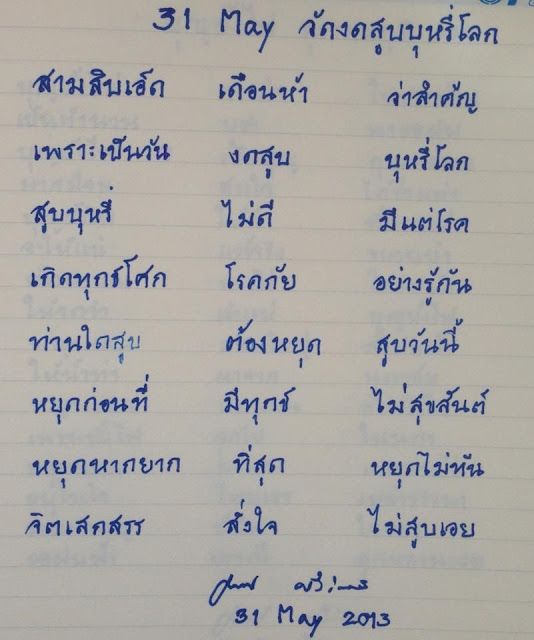 31 May วัดงดสูบบุหรี่โลก
สามสิบเอ็ด เดือนห้า ว่าสำคัญ
เพราะเป็นวัน งดสูบ บุหรี่โลก
สูบบุหรี่ ไม่ดี มีแต่โรค
เกิดทุกข์โศก โรคภัย อย่างรู้กัน
ท่านใดสูบ ต้องหยุด สูบวันนี้
หยุดก่อนที่ มีทุกข์ ไม่สุขสันต์
หยุดหากยาก ที่สุด หยุดไม่ทัน
จิตเสกสรร สั่งใจ ไม่สูบเอย
31 May 2013